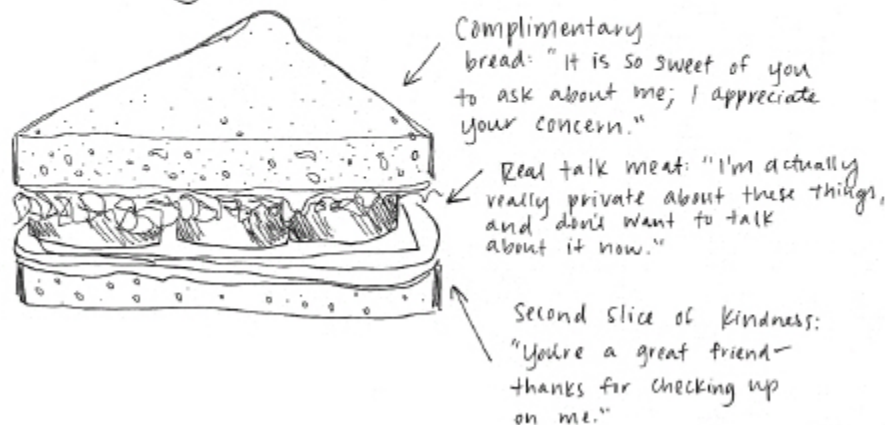 Complimentary
bread: "It is so sweet of you
to ask about me; I appreciate
your concern."
Real talk meat: "I'm actually
really private about these things,
and don't want to talk
about it now."
Second slice of kindness:
"You're a great friend—
thanks for checking up
on me."